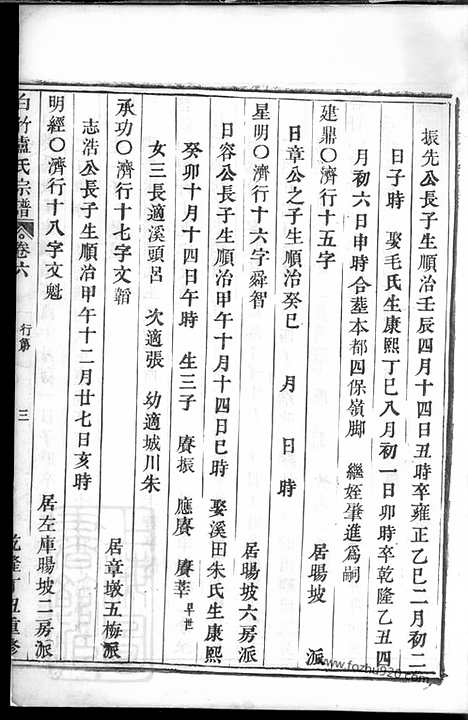 振先公長子生順治壬辰四月十四日丑時卒雍正乙巳二月初二
日子時　娶毛氏生康熙丁巳八月初一日卯時卒乾隆乙丑四
月初六日申時合葬本都四保嶺脚　繼姪肇進爲嗣
建鼎〇濟行十五字　居暘坡　派
日章公之子生順治癸巳　月　日　時
星明〇濟行十六字舜智　居暘坡六房派
日容公長子生順治甲午十月十四日巳時　娶溪田朱氏生康熙
癸卯十月十四日午時　生三子　賡振　應賡　賡莘早世
女三長適溪頭呂　次適張　幼適城川朱
承功〇濟行十七字文韜　居章墩五梅派
志浩公長子生順治甲午十二月廿七日亥時
明經〇濟行十八字文魁　居左庫暘坡二房派
白竹盧氏宗譜　卷六　行第　三　乾隆丁丑重修
www.fozhu920.com